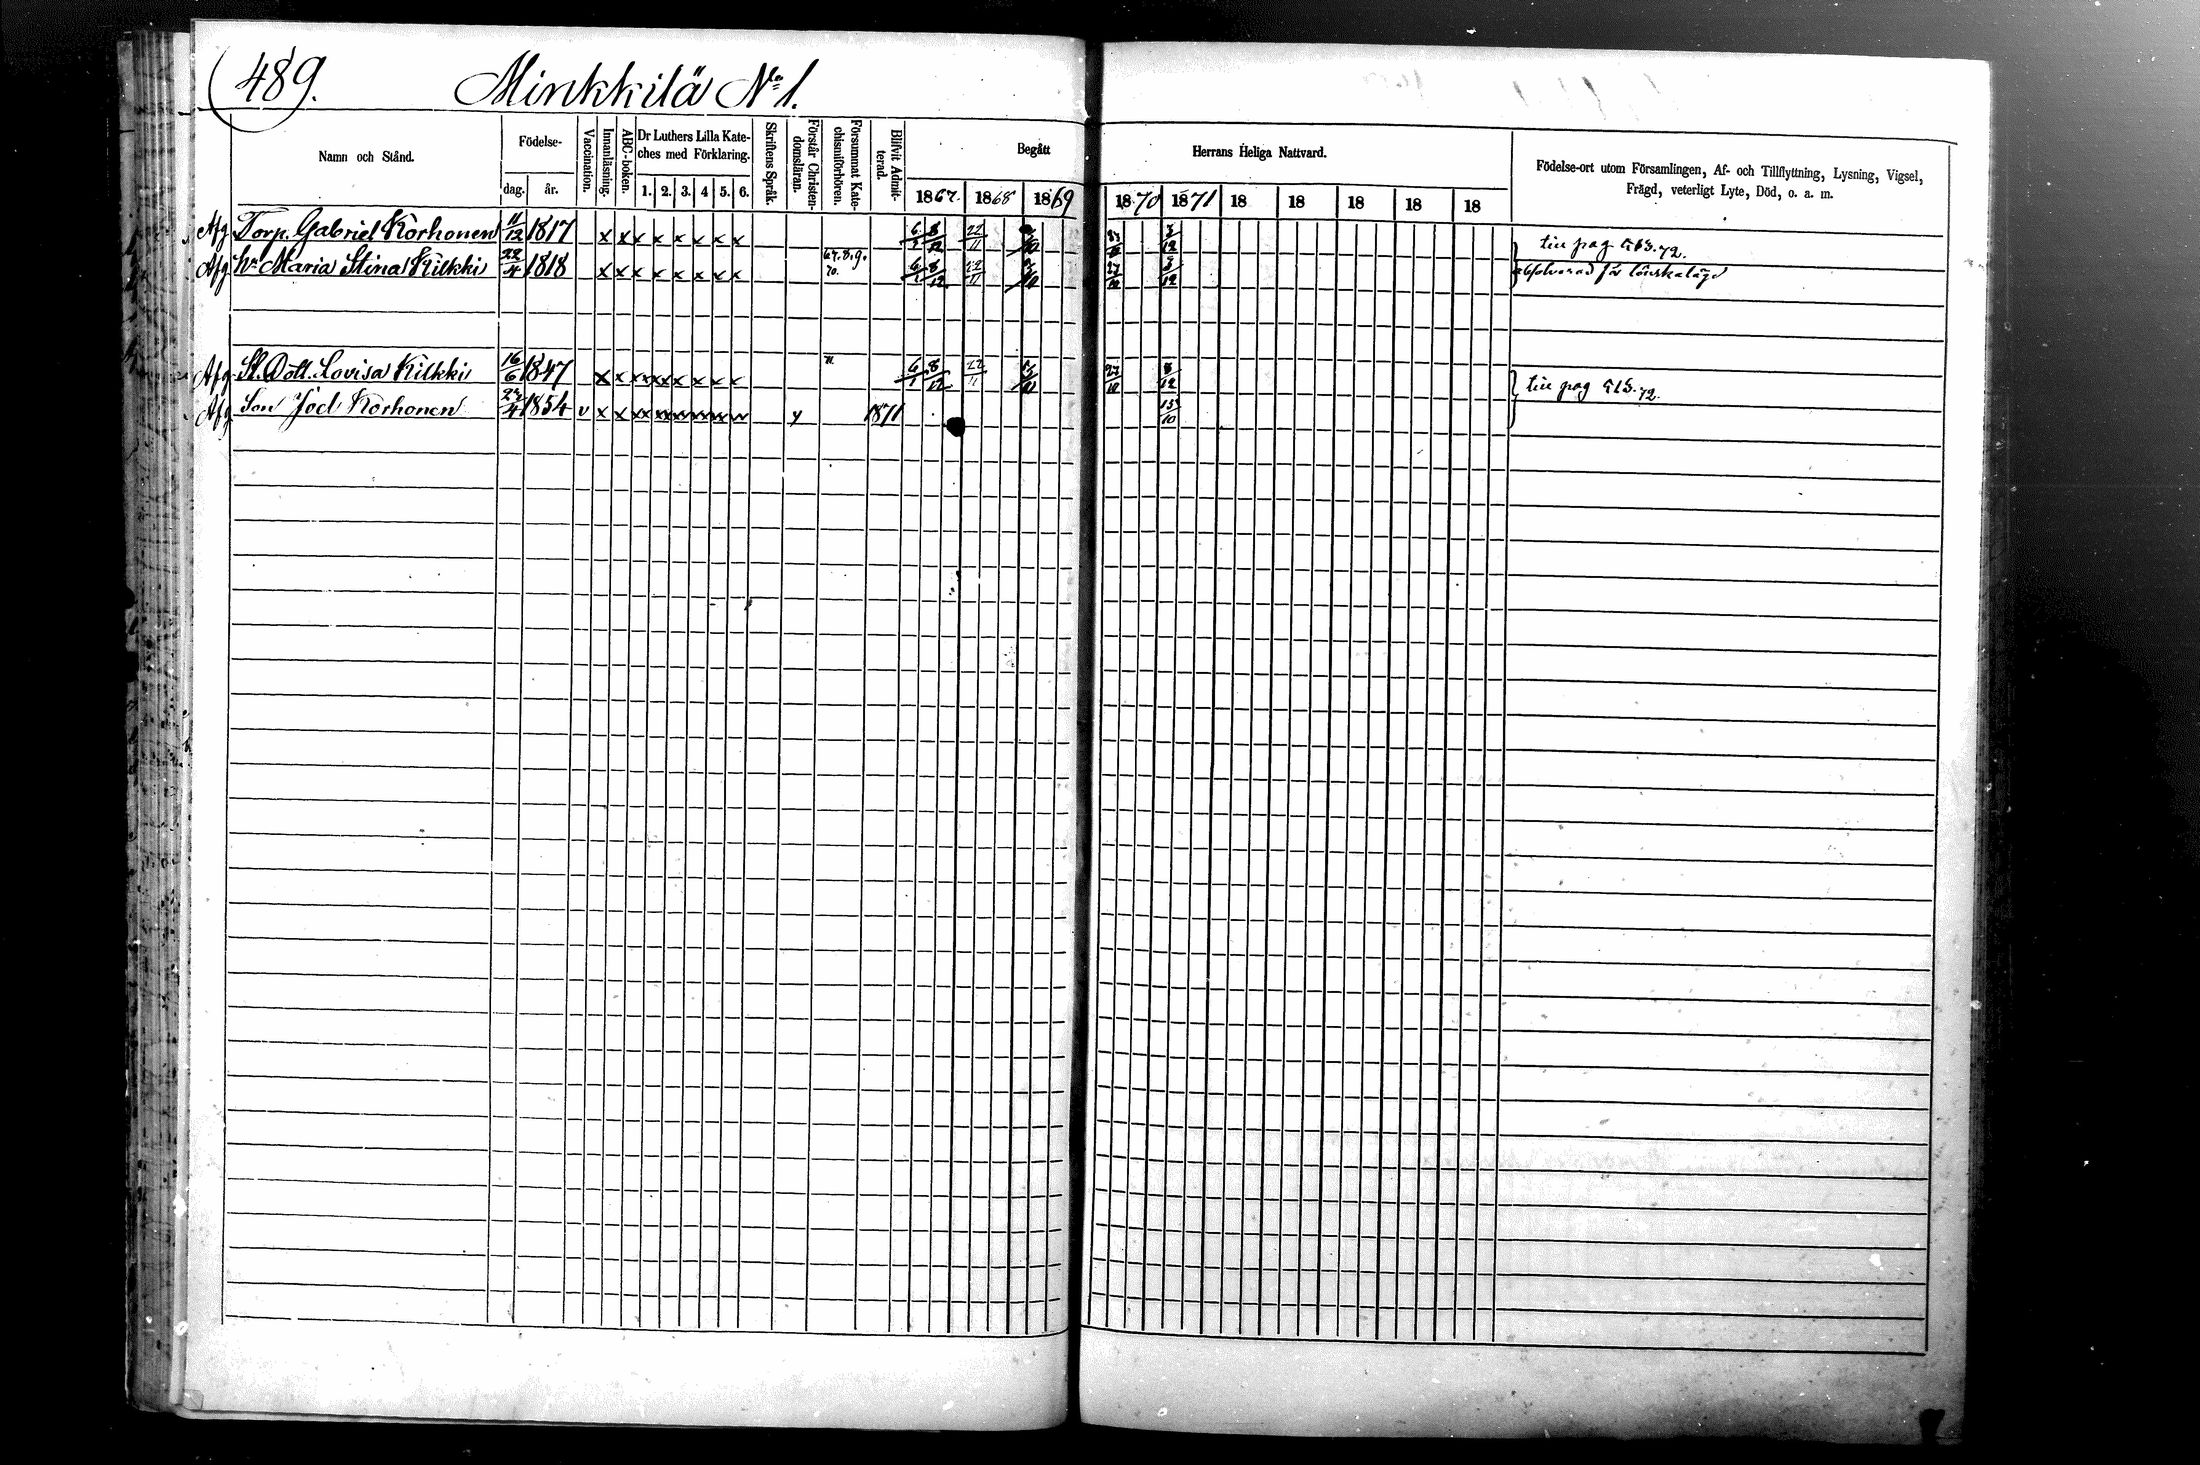 489. Minkkilä No 1.
Namn och Stånd.
Födelse-
dag. år.
Vaccination.
Innanläsning.
ABC-boken.
Dr Luthers Lilla Kate-
ches med Förklaring.
1. 2. 3. 4 5. 6.
Skriftens Språk.
Förstår Christen-
domsläran.
Försummat Kate-
chismiförhören.
Blifvit Admit-
terad.
Begått Herrans Heliga Nattvard.
1867. 1868 1869 1870 1871 18 18 18 18 18
Födelse-ort utom Församlingen, Af- och Tillflyttning, Lysning, Vigsel,
Frägd, veterligt Lyte, Död, o. a. m.
Afg Torp. Gabriel Korhonen 11/12 1817 x x x x x x x x x 6/1 8/12 22/11 3/12 till pag
Afg hu Maria Stina Kilkki 22/4 1818 x x x x x x x x 67.8.9. 70. 6/1 8/12 22/11 27/10 3/12 absolverad för lönskaläge
Afg Sl. Dott. Lovisa Kilkki 16/6 1847 x x x x x x x x " 6/1 8/12 22/11 27/10 3/12 till pag
Afg Son Joel Korhonen 24/4 1854 v x x x x x x x x y 1871 15/10